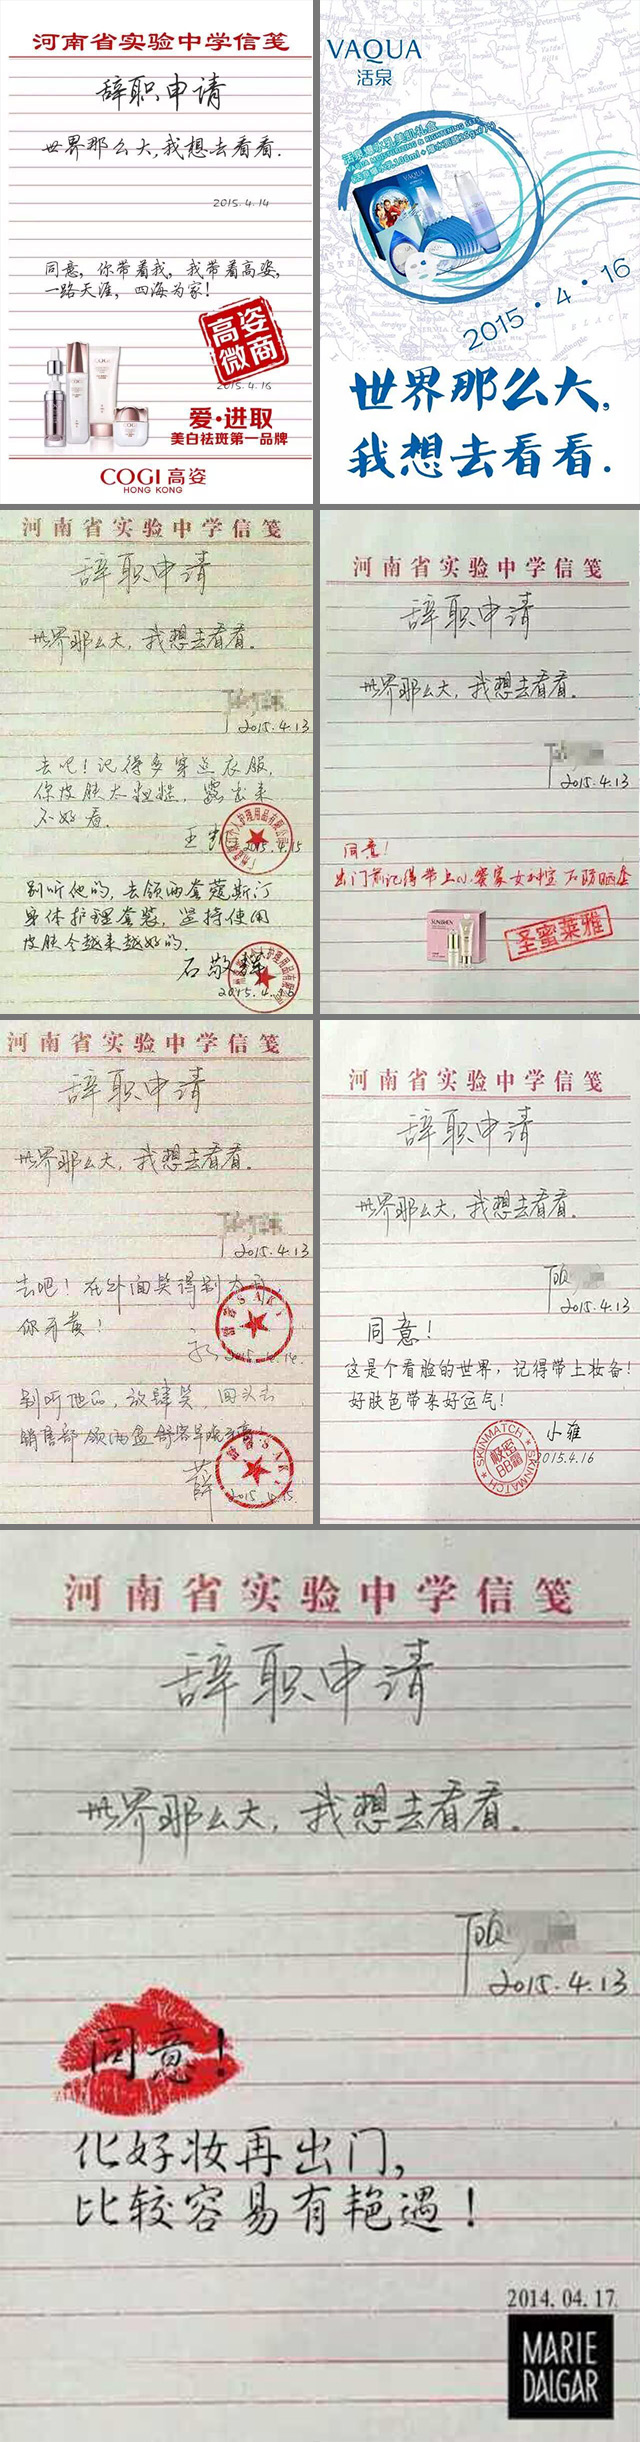 河南省实验中学信笺
辞职申请
世界那么大,我想去看看.
2015.4.14
同意,你带着我,我带着高姿,
一路天涯,四海为家!
高姿
微商
2015.4.16
爱·进取
美白祛斑第一品牌
COGI 高姿
HONG KONG
VAQUA
活泉
活泉爆水乳美肌礼盒
VAQUA
2015·4·16
世界那么大,
我想去看看.
河南省实验中学信笺
辞职申请
世界那么大,我想去看看.
2015.4.13
去吧!记得多穿点衣服,
你皮肤太粗糙,露出来
不好看.
2015.4.15
别听他的,去领两套蔻斯汀
身体护理套装,坚持使用
皮肤会越来越好的.
石敬辉
2015.4.16
河南省实验中学信笺
辞职申请
世界那么大,我想去看看.
2015.4.13
同意!
出门前记得带上
圣蜜莱雅
河南省实验中学信笺
辞职申请
世界那么大,我想去看看.
2015.4.13
去吧!在外面笑得别太
你牙黄!
别听他的,放肆笑,回头去
销售部领两盒舒客早晚牙膏!
薛
2015.4.15
河南省实验中学信笺
辞职申请
世界那么大,我想去看看.
顾
2015.4.13
同意!
这是个看脸的世界,记得带上妆备!
好肤色带来好运气!
小雅
SKINMATCH SKINMATCH
BB霜
2015.4.16
河南省实验中学信笺
辞职申请
世界那么大,我想去看看.
顾
2015.4.13
同意!
化好妆再出门,
比较容易有艳遇!
2014.04.17.
MARIE
DALGAR